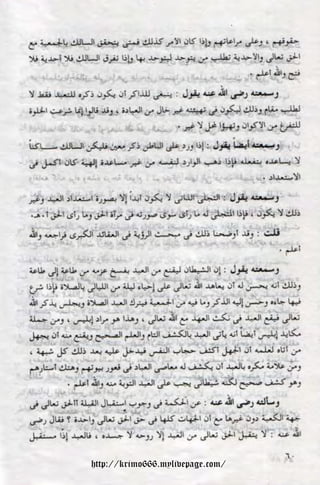 حقوقهم ، وعلى مراعاتهم وإذا كان الأمر كذلك فمتى يتحقق السالك بالجمعية مع
الحق تعالى والأحدية تطلب من يتوحد ليتوحد بها وإذا تفرق السالك فلا أحدية فلا
فتح والله أعلم .
وسمعته رضي الله عنه يقول : ينبغي للذاكر أن يكون ذكره للتعبد فقط لا
لطلب مقام وذلك ليكون في تهيئته غير خال من العبادة ، وقد قالوا إنما شرعت الخلوة
للتفرغ من الأكوان وتهيؤ المحل لا غير .
وسمعته أيضاً يقول : إذا ورد على الباطن ذكر معين فليكن السالك ساكناً
لا يساعده بتفعله فإذا ذهب الوارد ليقسه من غير مساعدة إلهية كان أكمل في
الاستعداد .
وسمعته يقول : التجلي الذاتي لا يكون أبداً إلا بصورة استعداد العبد وغير
ذلك لا يكون ، فإذاً المتجلى له ما رأى سوى صورته في مرآة الحق وما رأى الحق ا.هـ.
قلت : وقد أوضحنا ذلك في مبحث الرؤية في العقائد الكبرى فراجعه والله
أعلم .
وسمعته يقول : إن الشيطان ليقنع من العبد بفسخ عزمه من طاعة إلى طاعة
وذلك أنه يحسن له أن يعاهد الله تعالى على إحياء ليلة من الليالي بالصلاة فإذا شرع
فيها جاءه وحسن إليه الذكر وما فيه من الجمعية فيترك العبد الصلاة ويجلس يذكر الله
تعالى فيقع العبد في نكث العهد مع الله تعالى ، وهذا هو مراد إبليس ، ومن جملة
مكايد إبليس أيضاً أنه يأتي العبد بالكشف التام والعلم الصحيح ويقنع منه أن يجهل
من أتاه لعلمه أن الجهل أكثف حجاب النفس فيدخل عليه بعد ذلك كل شبهة ،
ومن علامة مكره بالعبد أن يكشف له معاصي العباد في قعور بيوتهم وهتك أستارهم
وهو كشف صحيح لكنه شيطاني يجب على العبد التوبة منه والله أعلم .
وسألته رضي الله عنه : عن الحكمة في وجوب استقبال القبلة أألحق تعالى في
جهة الكعبة دون غيرها مع أن الجهات كلها في حق الحق تعالى واحدة ؟ فقال رضي
الله عنه : لا يتقبل الحق تعالى من العبد إلا روحه لا جسده ، فالعبد إذاً مستقبل
٦٠
http://krimo666.mylivepage.com/